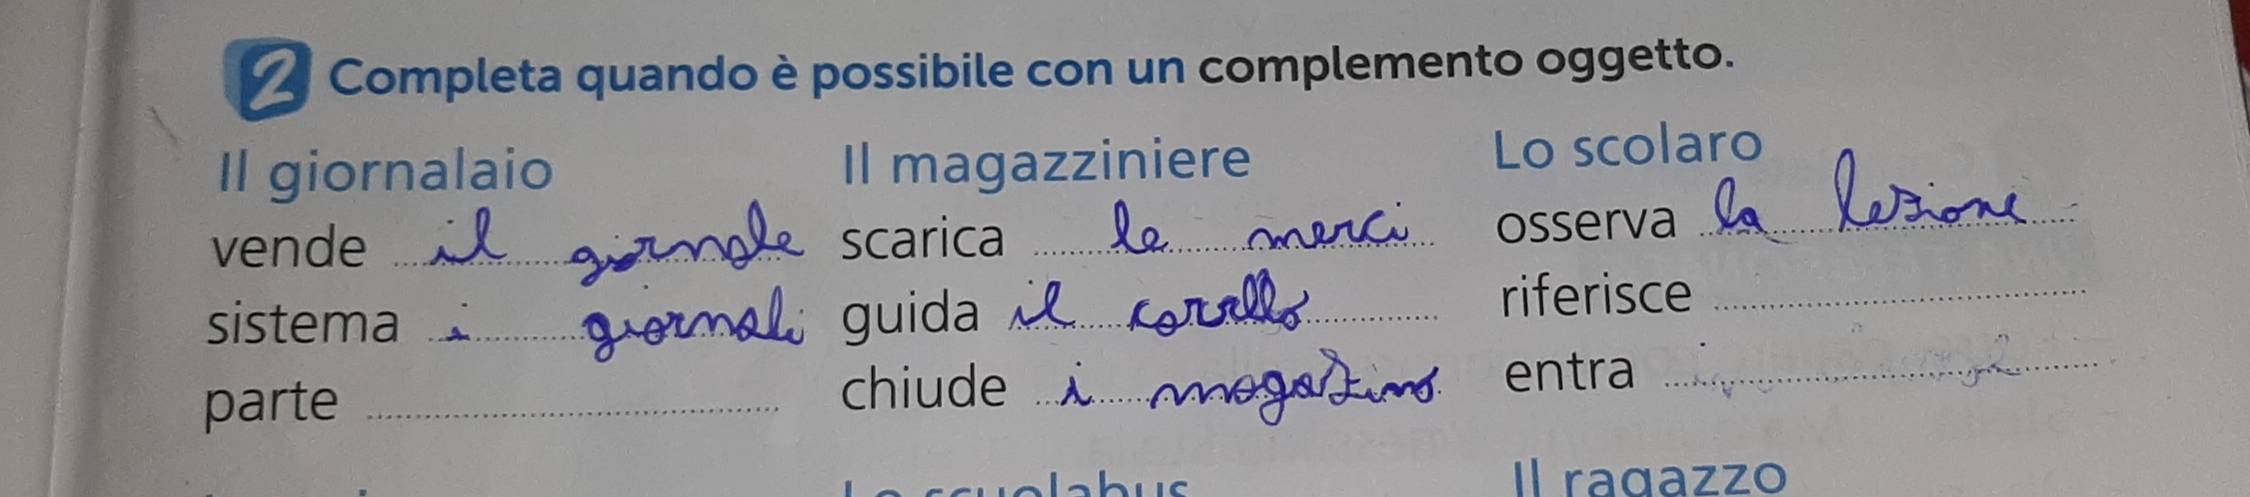 2 Completa quando è possibile con un complemento oggetto.
Il giornalaio
vende il giornale
sistema i giornali
parte
Il magazziniere
scarica le merci
guida il corello
chiude i magazzino
Lo scolaro
osserva la lezione
riferisce
entra
Il ragazzo